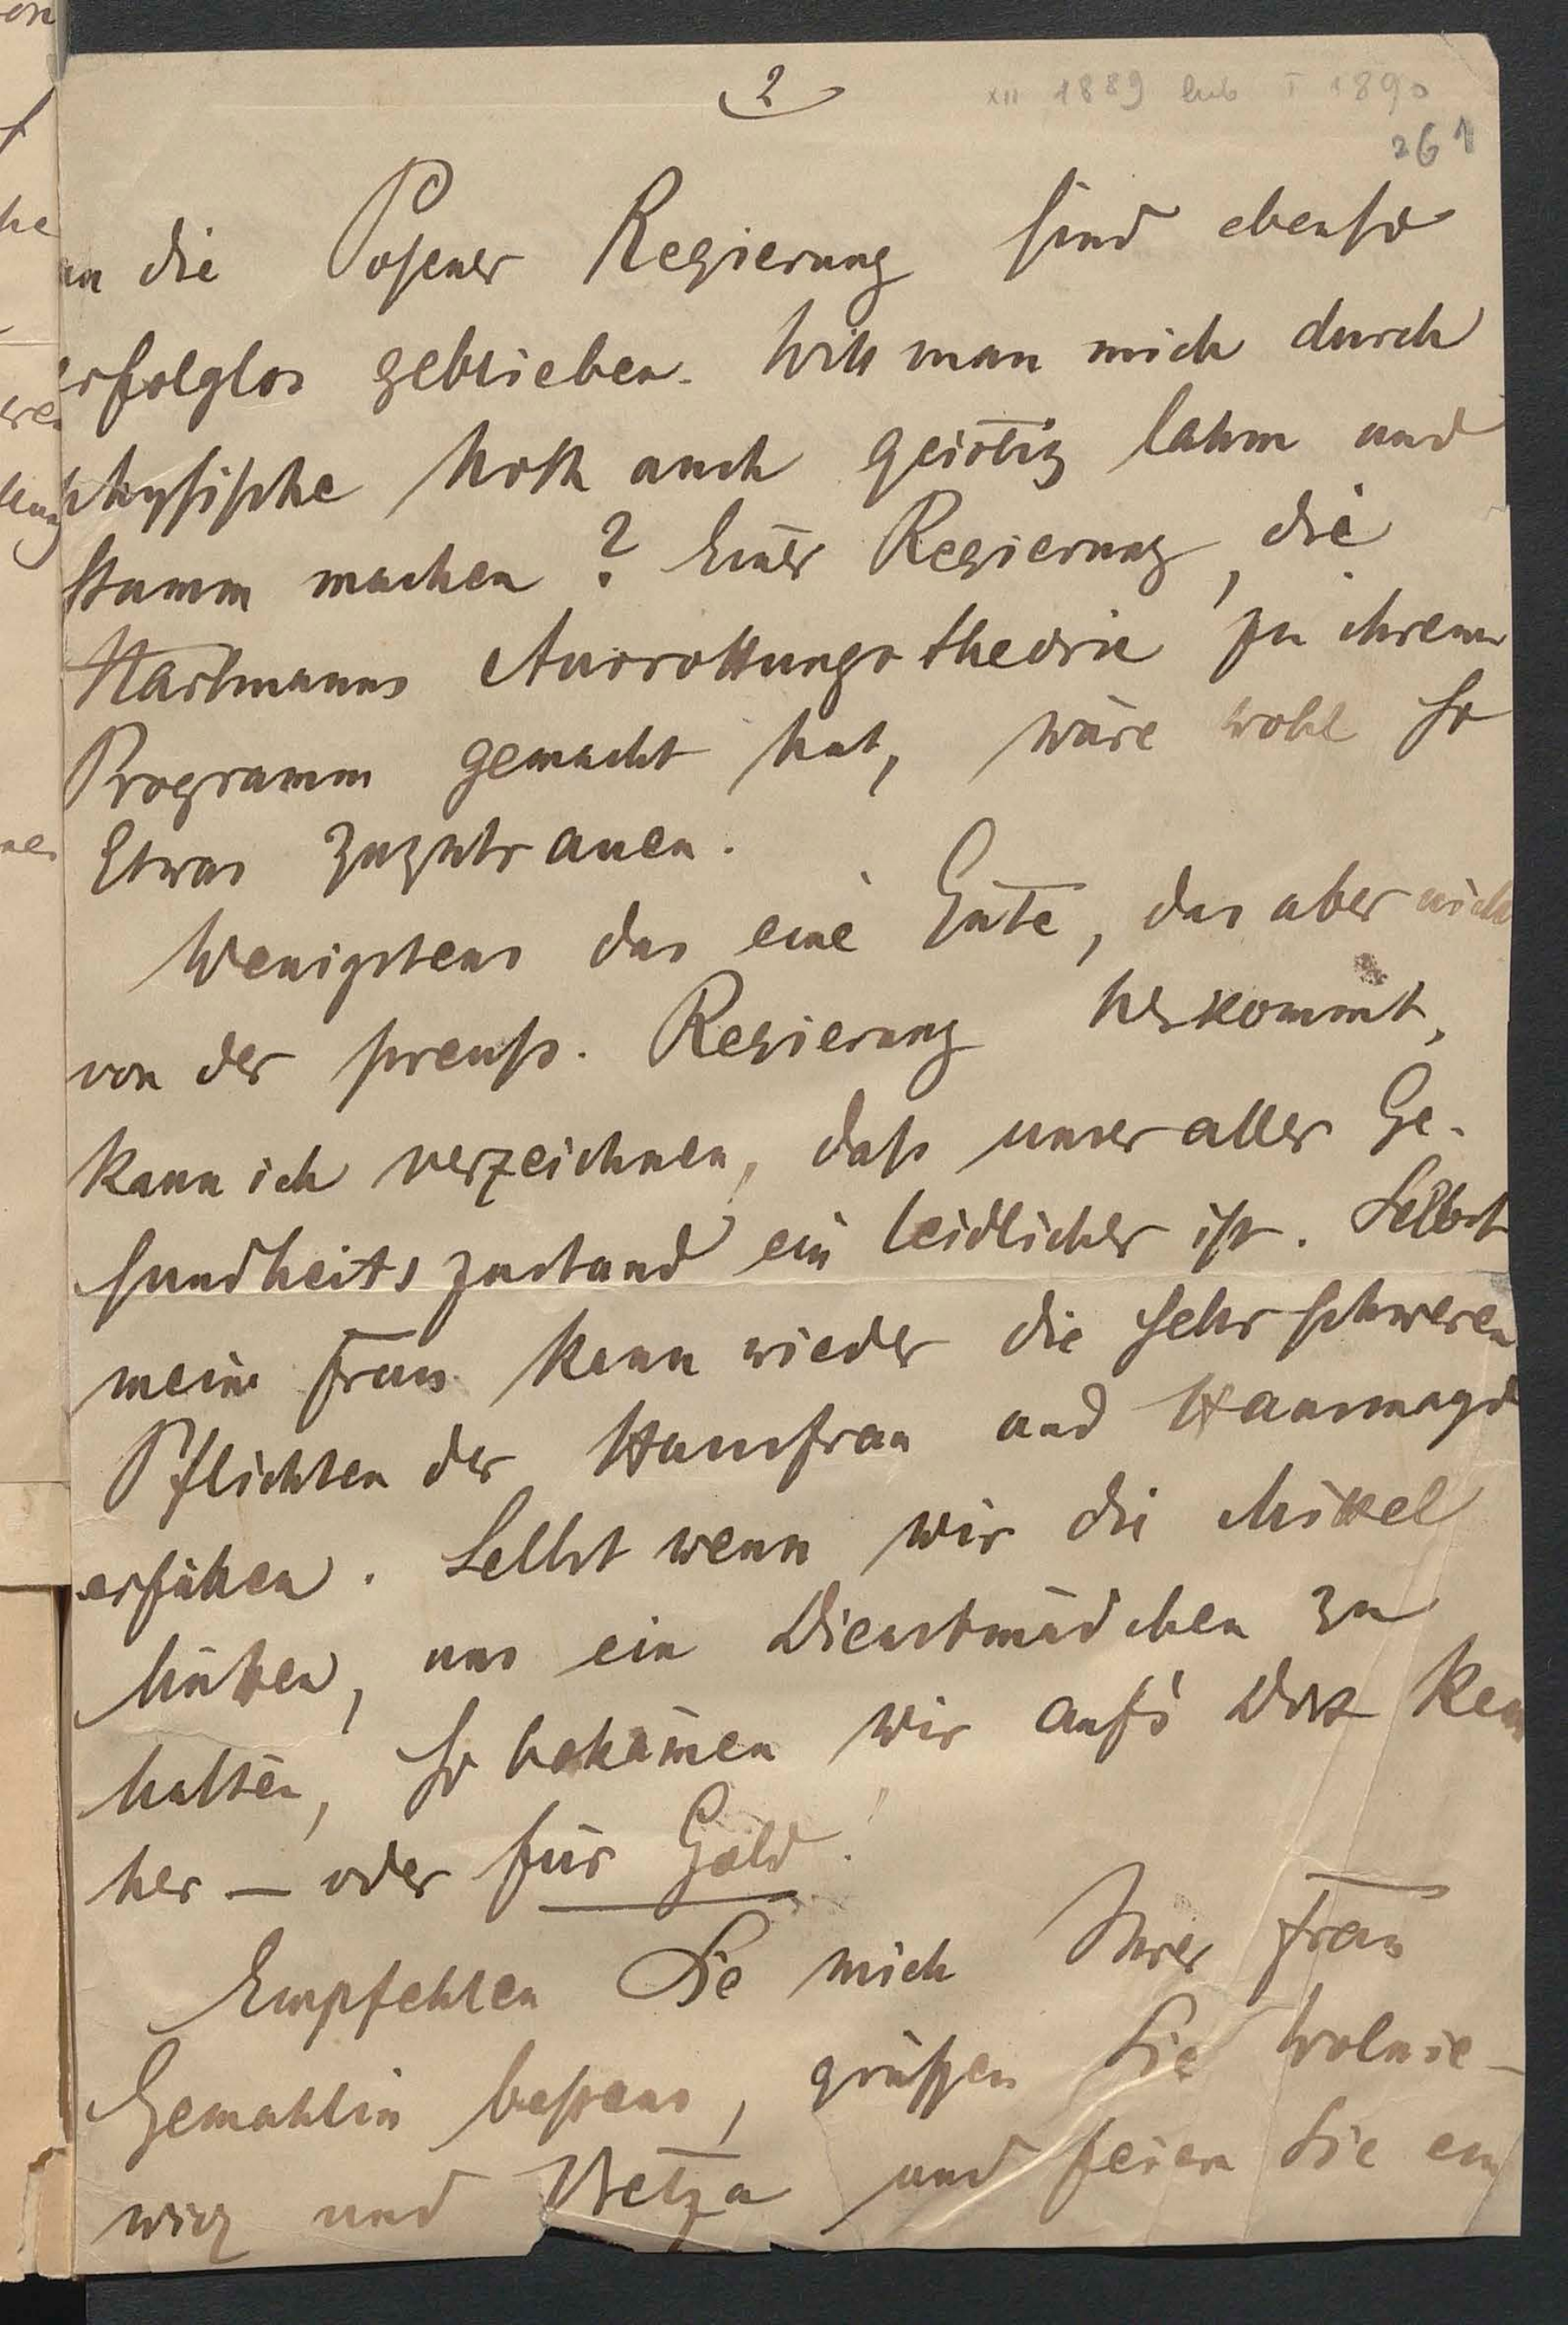 2
XII 1889 lub I 1890
261
an die Posener Regierung sind ebenso
erfolglos geblieben. Will man mich durch
physische Noth auch geistig lahm und
stumm machen? Einer Regierung, die
Hartmanns Ausrottungstheorie zu ihrem
Programm gemacht hat, wäre wohl so
Etwas zuzutrauen.
Wenigstens das eine Gute, das aber nicht
von der preuss. Regierung herkommt,
kann ich verzeichnen, dass unser aller Ge-
sundheitszustand ein leidlicher ist. Selbst
meine Frau kann wieder die sehr schweren
Pflichten der Hausfrau und Hausmagd
erfüllen. Selbst wenn wir die Mittel
hätten, uns ein Dienstmädchen zu
halten, so bekämen wir auf's Dorf kein
her — oder für Gold!
Empfehlen Sie mich Ihrer Frau
Gemahlin bestens, grüssen Sie Wolnie-
wicz und und feiern Sie ein